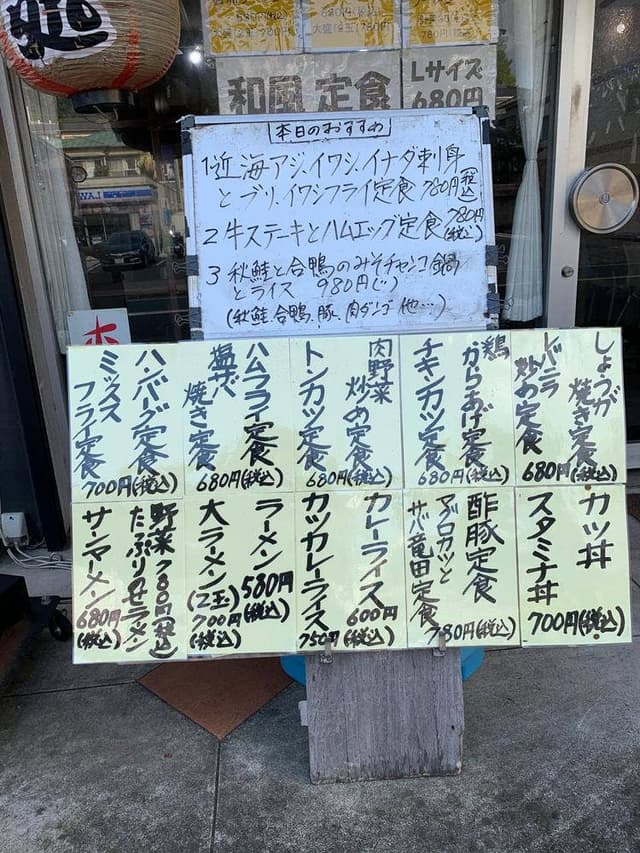 和風定食
Lサイズ
680円
本日のおすすめ
1 近海アジ、イワシ、イナダ刺身
とブリ、イワシフライ定食 780円(税込)
2 牛ステーキとハムエッグ定食 780円(税込)
3 秋鮭と合鴨のみそチャンコ鍋
とライス 980円(〃)
(秋鮭、合鴨、豚、肉ダンゴ 他…)
しょうが
焼き定食
レバニラ
炒め定食
680円(税込)
鶏
からあげ定食
チキンカツ定食
680円(税込)
肉野菜
炒め定食
トンカツ定食
680円(税込)
ハムフライ定食
塩サバ
焼き定食
680円(税込)
ハンバーグ定食
ミックス
フライ定食
700円(税込)
カツ丼
スタミナ丼
700円(税込)
酢豚定食
マグロカツと
サバ竜田定食
780円(税込)
カレーライス
600円(税込)
カツカレーライス
750円(税込)
ラーメン
580円(税込)
大ラーメン(2玉)
700円(税込)
野菜
たっぷりみそラーメン
780円(税込)
サンマーメン
680円(税込)